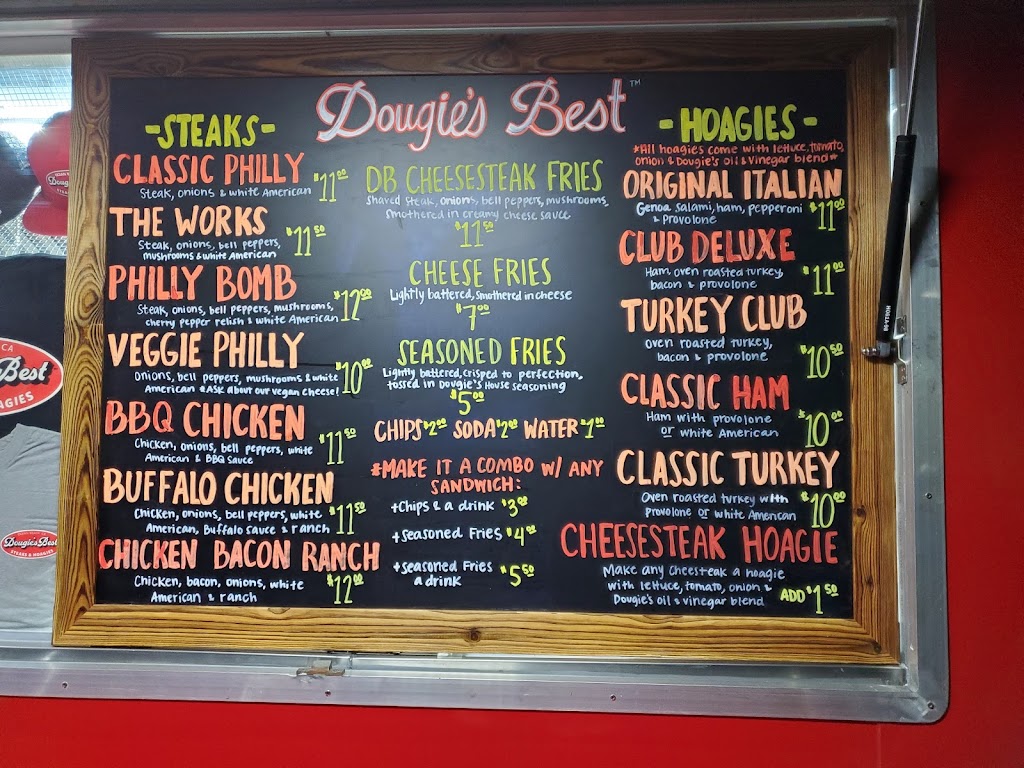 Dougie's Best™
-STEAKS-
CLASSIC PHILLY
Steak, onions & white American $11.00
THE WORKS
Steak, onions, bell peppers,
mushrooms & white American $11.50
PHILLY BOMB
Steak, onions, bell peppers, mushrooms,
cherry pepper relish & white American $12.00
VEGGIE PHILLY
Onions, bell peppers, mushrooms & white
American *ASK about our vegan cheese! $10.00
BBQ CHICKEN
Chicken, onions, bell peppers, white
American & BBQ Sauce $11.50
BUFFALO CHICKEN
Chicken, onions, bell peppers, white
American, Buffalo sauce & ranch $11.50
CHICKEN BACON RANCH
Chicken, bacon, onions, white
American & ranch $12.00
DB CHEESESTEAK FRIES
Shaved steak, onions, bell peppers, mushrooms,
smothered in creamy cheese sauce
$11.50
CHEESE FRIES
Lightly battered, smothered in cheese
$7.00
SEASONED FRIES
Lightly battered, crisped to perfection,
tossed in Dougie's House seasoning
$5.00
CHIPS $2.00 SODA $2.00 WATER $1.00
*MAKE IT A COMBO W/ ANY
SANDWICH:
+Chips & a drink $3.00
+seasoned Fries $4.00
+seasoned Fries
a drink $5.50
-HOAGIES-
*All hoagies come with lettuce, tomato,
onion & Dougie's oil & vinegar blend*
ORIGINAL ITALIAN
Genoa salami, ham, pepperoni
& provolone $11.00
CLUB DELUXE
Ham, oven roasted turkey,
bacon & provolone $11.00
TURKEY CLUB
oven roasted turkey,
bacon & provolone $10.50
CLASSIC HAM
Ham with provolone
or white American $10.00
CLASSIC TURKEY
Oven roasted turkey with
provolone or white American $10.00
CHEESESTEAK HOAGIE
Make any Cheesteak a hoagie
with lettuce, tomato, onion &
Dougie's oil & vinegar blend ADD $1.50
Best
Dougie's Best
STEAKS & HOAGIES